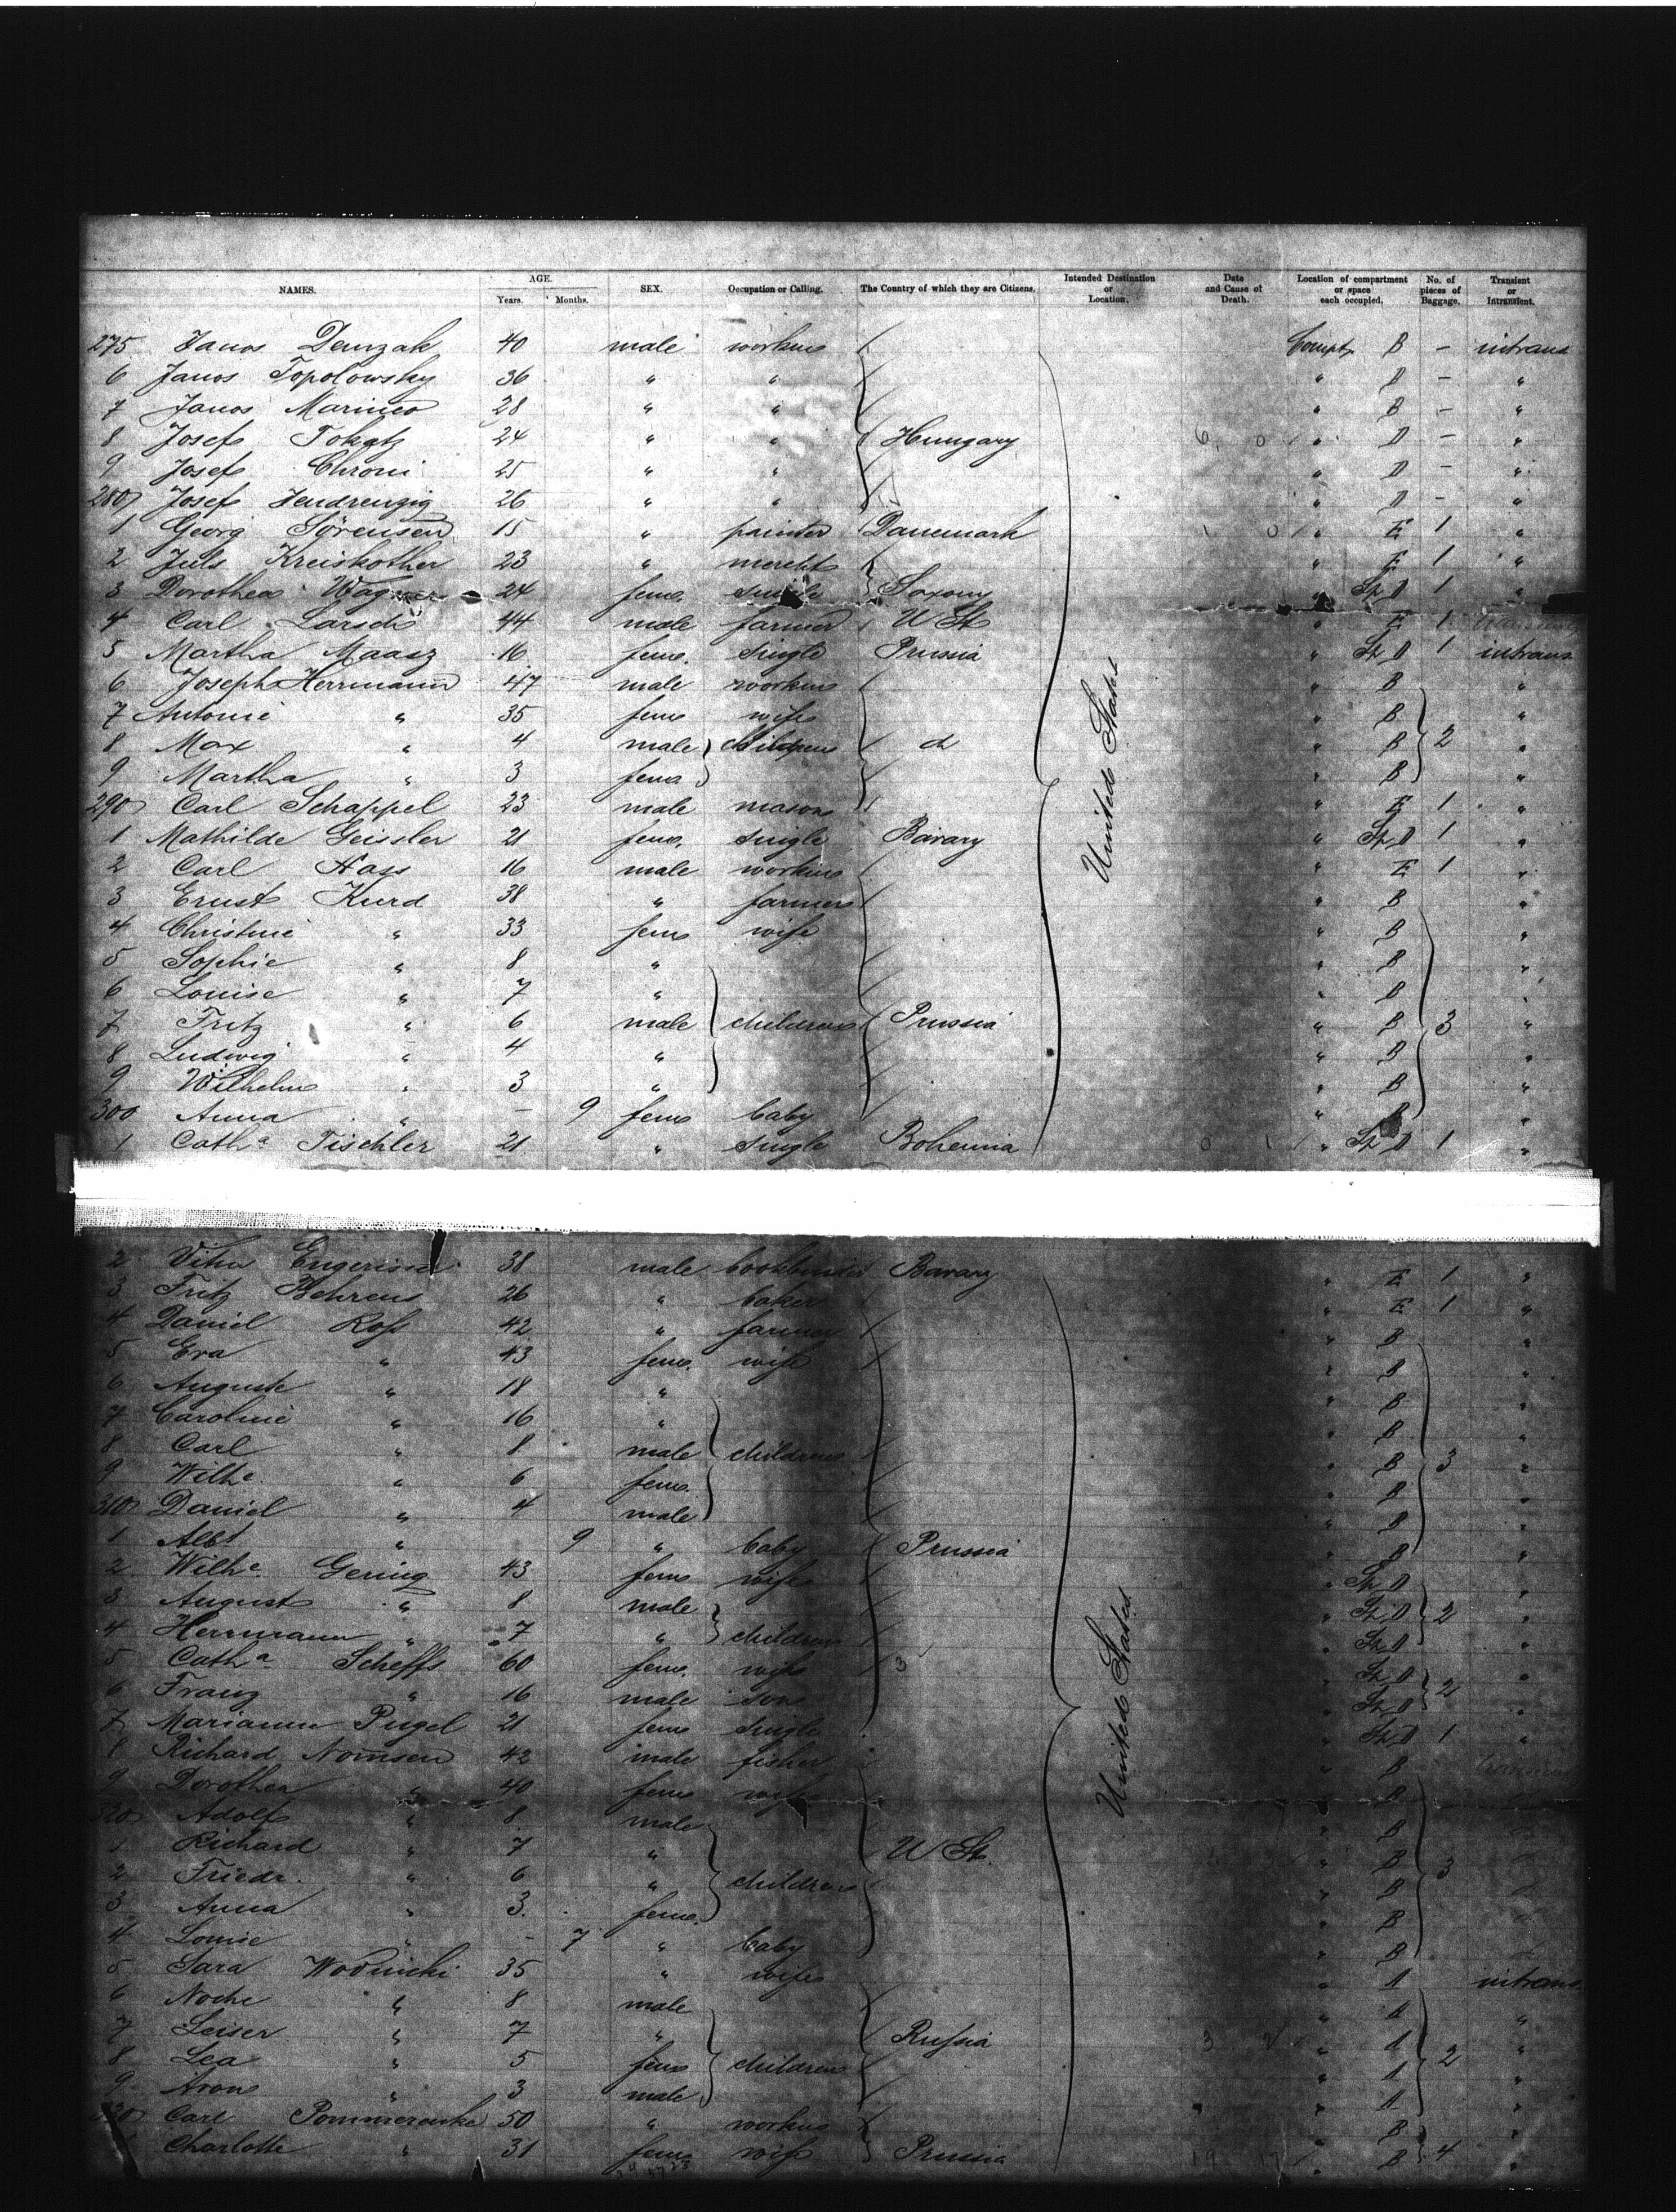 NAMES. AGE. Years. Months. SEX. Occupation or Calling. The Country of which they are Citizens. Intended Destination or Location. Date and Cause of Death. Location of compartment or space each occupied. No. of pieces of Baggage. Transient or Intransient.
275 Janos Demzak 40 male workm Compt. B – intrans
6 Janos Topolowsky 36 " " " D – "
7 Janos Marinco 28 " " " B – "
8 Josef Tokatz 24 " " Hungary " D – "
9 Josef Chroni 25 " " " D – "
280 Josef Hendrenzig 26 " " " D – "
1 Georg Sörensen 15 " painter Danemark " E 1 "
2 Juls Kreiskother 23 " mercht " E 1 "
3 Dorothea Wagner 24 fem. single Saxony " St. D 1 "
4 Carl Larsch 44 male farmer U St " E 1
5 Martha Maasz 16 fem. single Prussia " St. D 1 intrans
6 Joseph Herrmann 47 male workm " B "
7 Antonie " 35 fem wife " B "
8 Max " 4 male children do " B 2 "
9 Martha " 3 fem " B "
290 Carl Schappel 23 male mason " E 1 "
1 Mathilde Geissler 21 fem. single Bavary " St. D 1 "
2 Carl Hass 16 male workm " E 1 "
3 Ernst Kurd 38 " farmer " B "
4 Christine " 33 fem wife " B "
5 Sophie " 8 " " B "
6 Louise " 7 " " B "
7 Fritz " 6 male children Prussia " B 3 "
8 Ludwig " 4 " " B "
9 Wilhelm " 3 " " B "
300 Anna " – 9 fem baby " B "
1 Catha Tischler 21 " single Bohemia " St. D 1 "
United States
2 38 male bookbinder Bavary " E 1 "
3 Fritz Behrens 26 " baker " E 1 "
4 Daniel Roß 42 " farmer " B "
5 Eva " 43 fem. wife " B "
6 Auguste " 18 " " B "
7 Caroline " 16 " " B "
8 Carl " 8 male children " B 3 "
9 Wilhe " 6 fem. " B "
310 Daniel " 4 male " B "
1 Albt " 9 " baby Prussia " B "
2 Wilhe Gering 43 fem wife " St. D "
3 August " 8 male " St. D 2 "
4 Herrmann " 7 " children " St. D "
5 Catha Scheffs 60 fem. wife " St. D "
6 Franz " 16 male son " St. D 2 "
7 Marianne Pugel 21 fem single " St. D 1 "
8 Richard Nomsen 42 male fisher " B
9 Dorothea " 40 fem wife " B
320 Adolf " 8 male " B
1 Richard " 7 " U St. " B
2 Friedr. " 6 " children " B 3
3 Anna " 3 fem. " B
4 Louise " – 7 " baby " B
5 Sara Wodnicki 35 " wife " A intrans
6 Noche " 8 male " A "
7 Leiser " 7 " Rußia " A "
8 Lea " 5 fem children " A 2 "
9 Aron " 3 male " A "
330 Carl Pommerenke 50 " workm " B "
1 Charlotte " 31 fem wife Prussia " B 4 "
United States